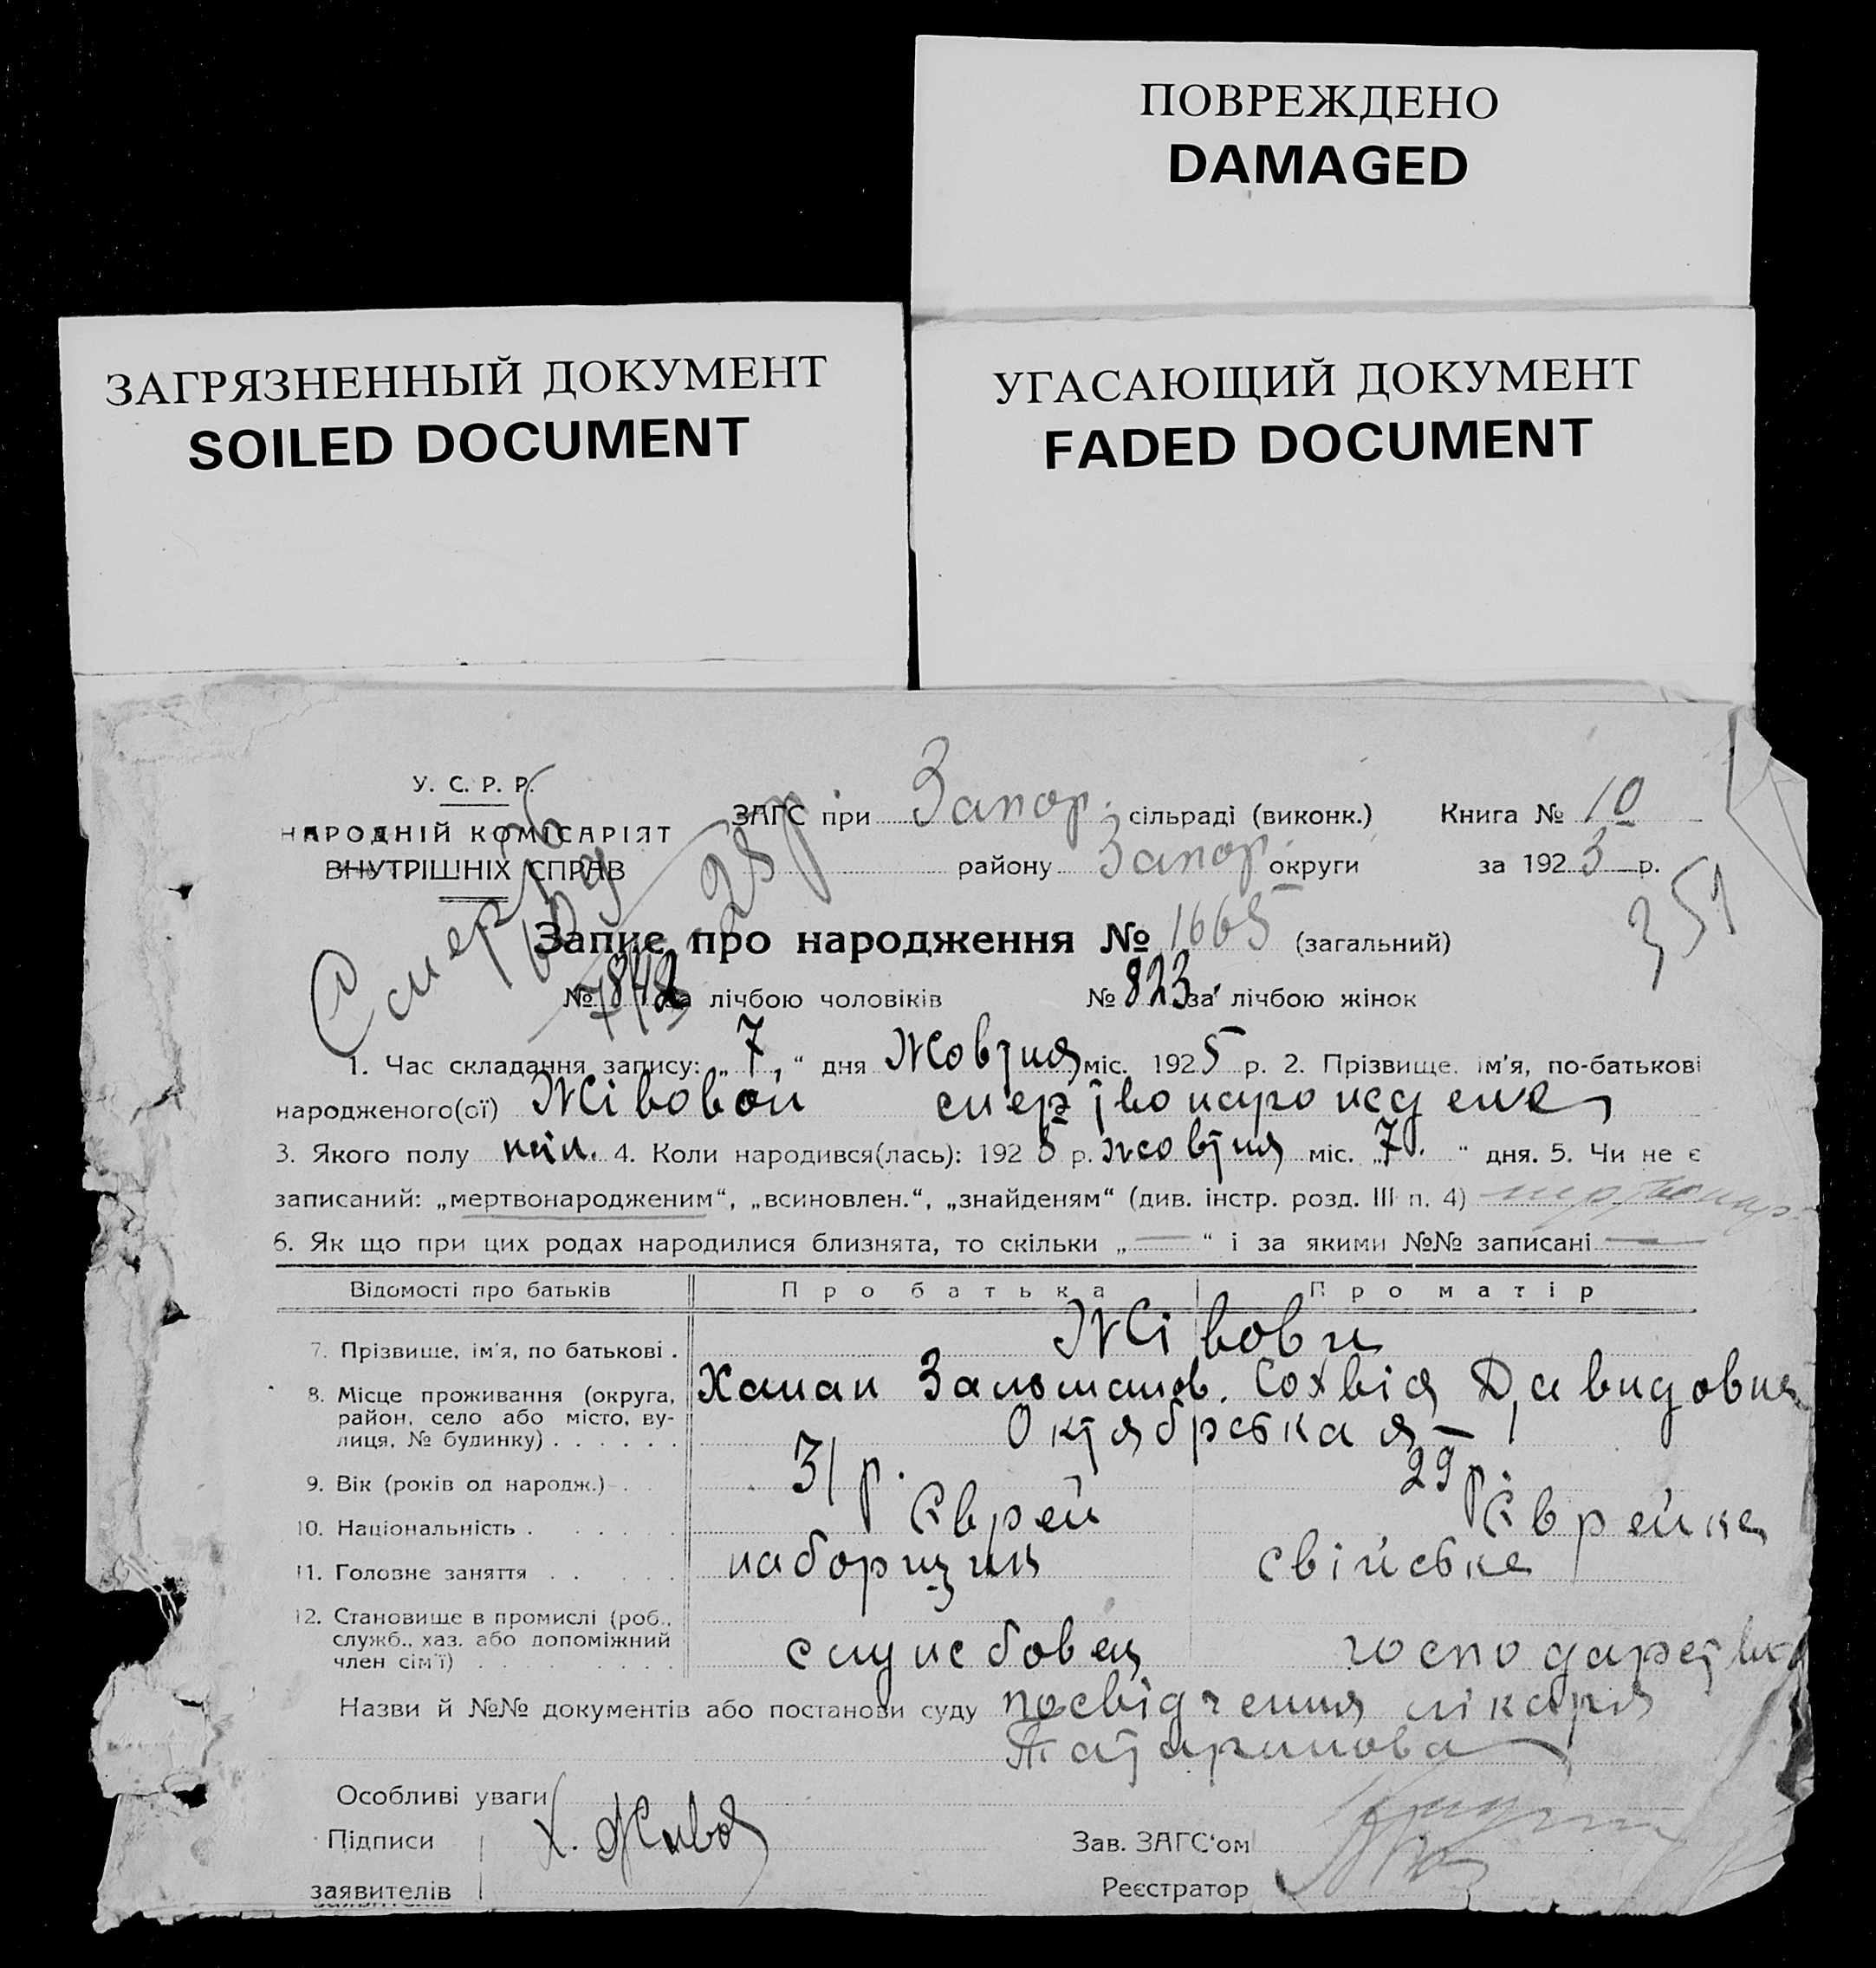 ПОВРЕЖДЕНО
DAMAGED
ЗАГРЯЗНЕННЫЙ ДОКУМЕНТ
SOILED DOCUMENT
УГАСАЮЩИЙ ДОКУМЕНТ
FADED DOCUMENT
У. С. Р. Р.
НАРОДНІЙ КОМІСАРІЯТ
ВНУТРІШНІХ СПРАВ
ЗАГС при Запор. сільраді (виконк.) Книга № 10
району Запор. округи за 1923 р.
351
Запис про народження № 1665 (загальний)
№ 842 за лічбою чоловіків № 823 за лічбою жінок
1. Час складання запису: „7“ дня Жовтня міс. 1925 р. 2. Прізвище, ім'я, по-батькові
народженого(ої) Жівовой смертвонарожденя
3. Якого полу жін. 4. Коли народився(лась): 1925 р. жовтня міс. „7“ дня. 5. Чи не є
записаний: „мертвонародженим“, „всиновлен.“, „знайденям“ (див. інстр. розд. III п. 4) мертвонар.
6. Як що при цих родах народилися близнята, то скільки „—“ і за якими №№ записані —
Відомості про батьків Про батька Про матір
7. Прізвище, ім'я, по батькові . Жівови
8. Місце проживання (округа, район, село або місто, вулиця, № будинку) . . . . . . Ханан Заломанов. Сохвія Давидовна
Октябрська я –
9. Вік (років од народж.) . . 31 р. 29 р.
10. Національність . . . . . . Єврей Єврейка
11. Головне заняття . . . . . наборщик свійське
12. Становище в промислі (роб., служб., хаз. або допоміжний член сім'ї) . . . . . . . службовец господарство
Назви й №№ документів або постанови суду посвідчення лікаря
Татаринова
Особливі уваги
Підписи Х. Живов
Зав. ЗАГС'ом
заявителів
Реєстратор